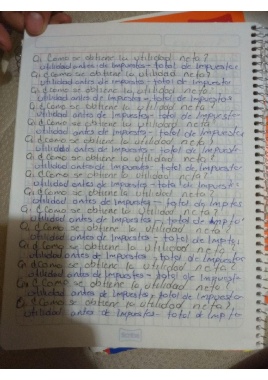 Qi Como se obtiene la utilidad neta?
utilidad antes de Impuestos - total de Impuestos
Qi ¿Como se obtiene la utilidad neta?
utilidad antes de Impuestos - total de Impuestos
Qi ¿Como se obtiene la utilidad neta?
utilidad antes de Impuestos - total de Impuestos
Qi ¿Como se obtiene la utilidad neta?
utilidad antes de Impuestos - total de Impuestos
Qi ¿Como se obtiene la utilidad neta?
utilidad antes de Impuestos - total de Impuestos
Qi ¿Como se obtiene la utilidad neta?
utilidad antes de Impuestos - total de Impuestos
Qi ¿Como se obtiene la utilidad neta?
utilidad antes de Impuestos - total de Impuestos
Qi ¿Como se obtiene la utilidad neta?
utilidad antes de Impuestos - total de Imptos
Qi ¿Como se obtiene la utilidad neta?
utilidad antes de Impuestos - total de Impto
Qi ¿Como se obtiene la utilidad neta?
utilidad antes de Impuestos - total de Impto
Qi ¿Como se obtiene la utilidad neta?
utilidad antes de Impuestos - total de Impuestos
Qi ¿Como se obtiene la utilidad neta?
utilidad antes de Impuestos - total de Impuesto
Qi ¿Como se obtiene la utilidad neta?
utilidad antes de Impuestos, total de Impuesto
Qi ¿Como se obtiene la utilidad neta?
utilidad antes de Impuestos - total de Impto